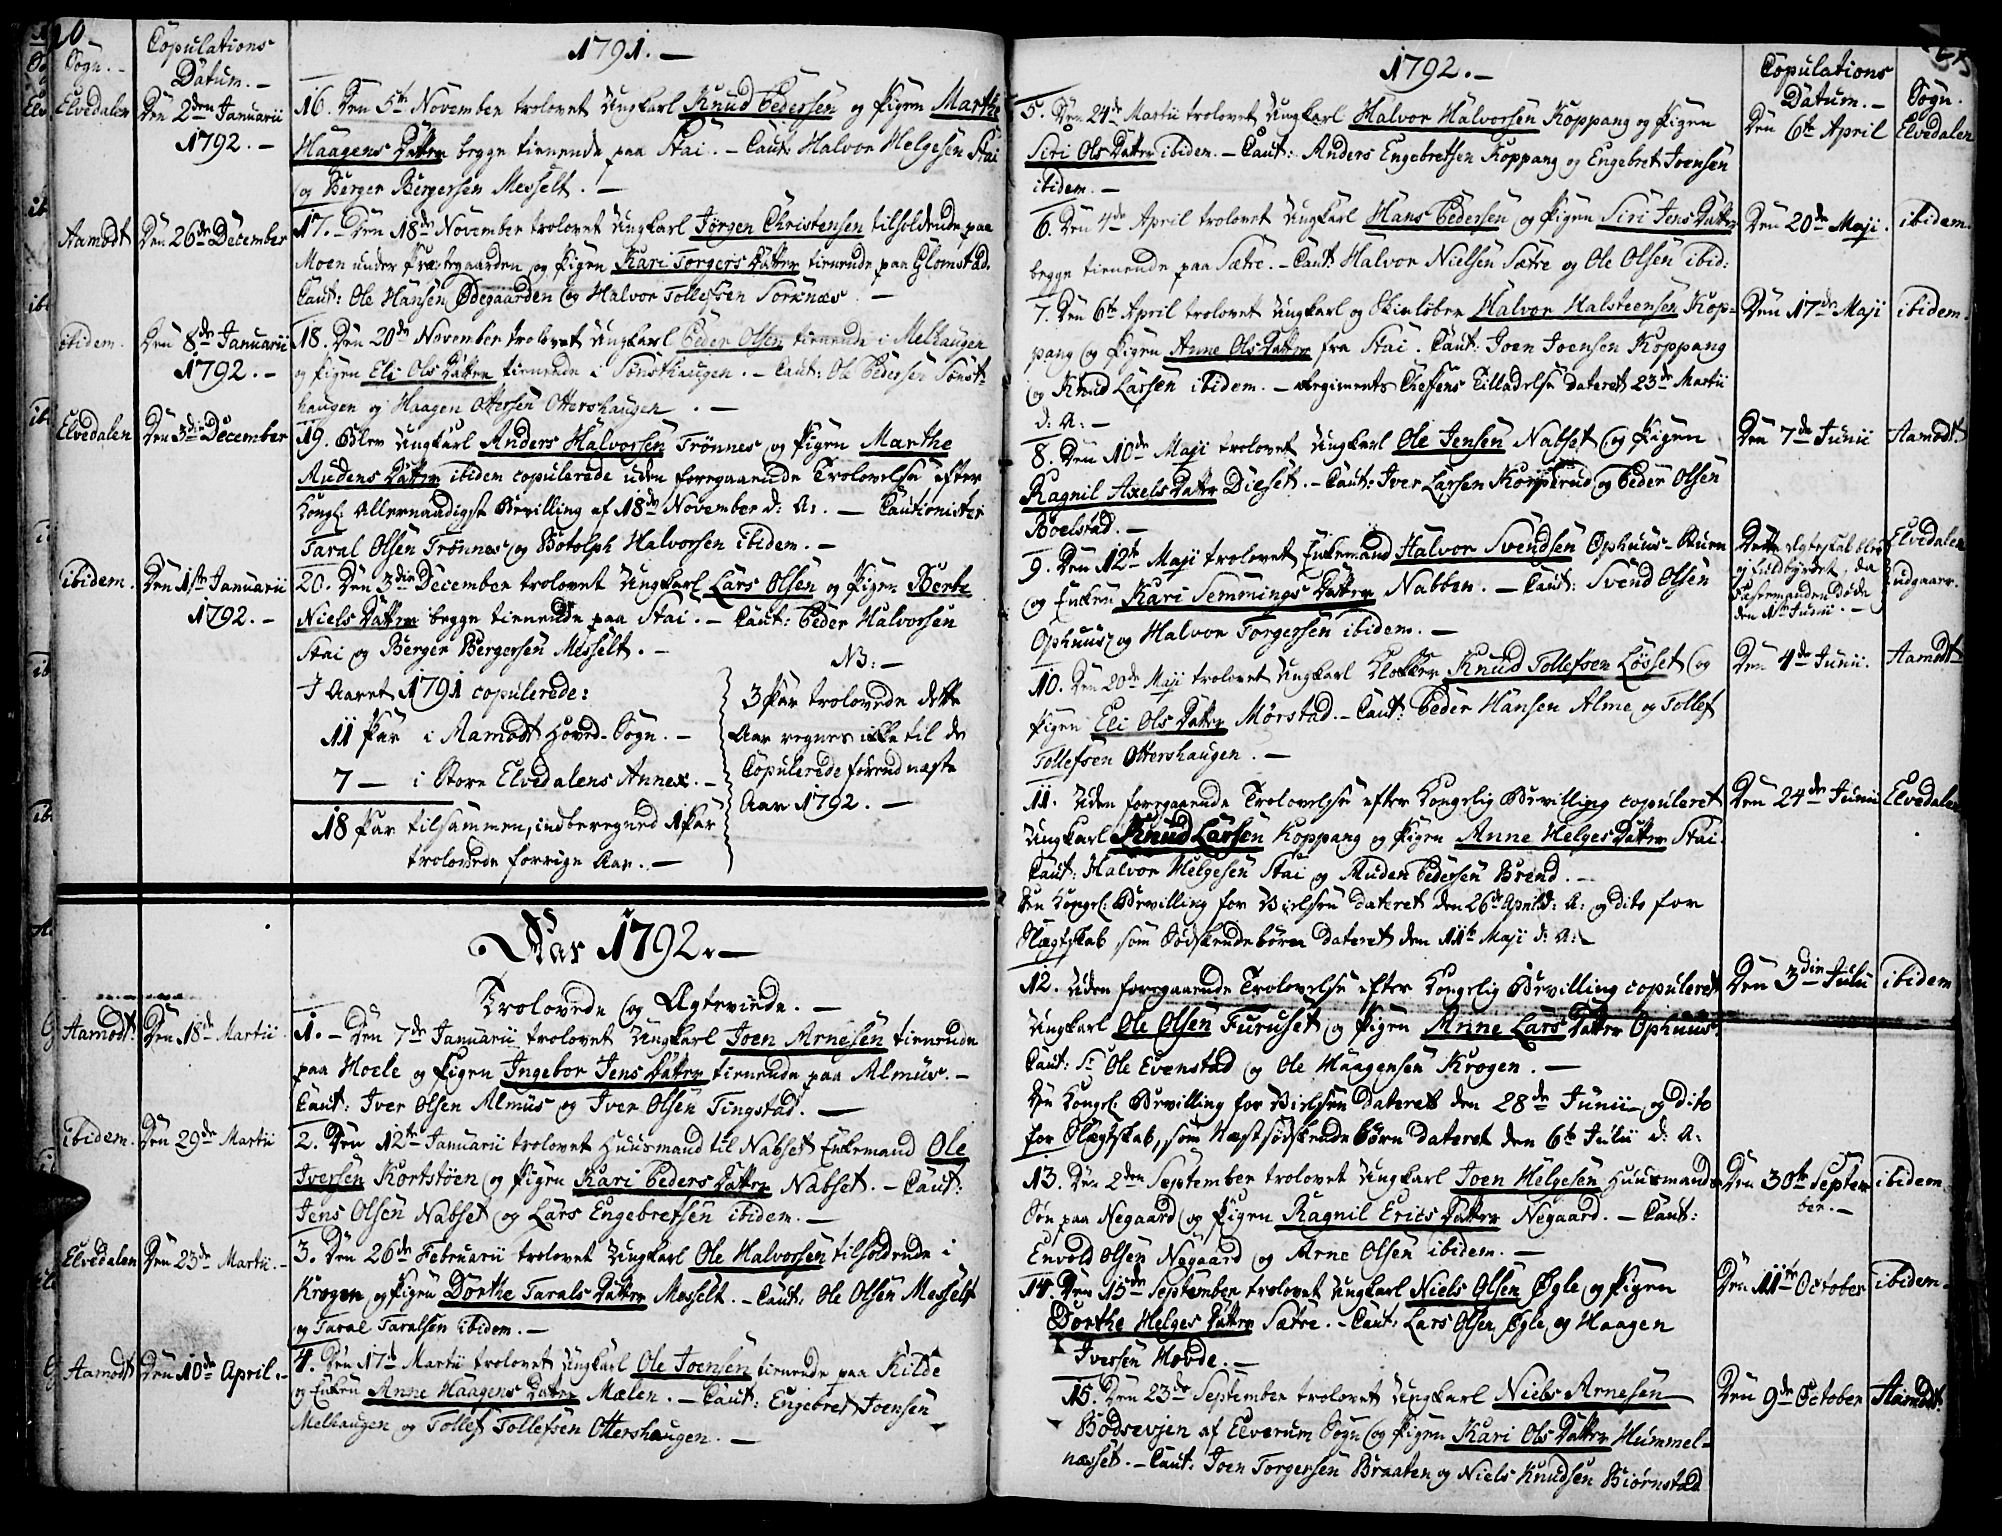 1791. —
Sogn. —
Copulations Datum. —
Elvedalen
Den 2den Januarii 1792. —
16. Den 5te November trolovet Ungkarl Knud Pedersen og Pigen Marthe
Haagens Datter begge tienende paa Stai. — Caut: Halvor Helgesen Stai
og Berger Bergersen Messelt. —
Aamodt
Den 26de December
17. — Den 18de November trolovet Ungkarl Jørgen Christensen tilholdende paa
Moen under Præstegaarden og Pigen Kari Torgers Datter tienende paa Glomstad.
Caut: Ole Hansen Ødegaarden og Halvor Tollefsen Sorknæs. —
ibidem.
Den 8de Januarii 1792. —
18. Den 20de November trolovet Ungkarl Peder Olsen tienende i Melhaugen
og Pigen Eli Ols Datter tienende i Sønsthaugen. — Caut: Ole Pedersen Sønst-
haugen og Haagen Ottersen Ottershaugen. —
Elvedalen
Den 3die December
19. Blev Ungkarl Anders Halvorsen Trønnes og Pigen Marthe
Audens Datter ibidem copulerede uden foregaaende Trolovelse efter
Kongl: Allernaadigst Bevilling af 18de November d: A:. — Cautionister
Taral Olsen Trønnes og Botolph Halvorsen ibidem. —
ibidem.
Den 1ste Januarii 1792. —
20. Den 3die December trolovet Ungkarl Lars Olsen og Pigen Berte
Niels Datter begge tienende paa Stai. — Caut: Peder Halvorsen
Stai og Berger Bergersen Messelt. —
I Aaret 1791 copulerede:
11 Par i Aamodt Hoved-Sogn. —
7 — i Store Elvedalens Annex. —
18 Par tilsammen, indberegned 1 Par
trolovede forrige Aar. —
NB: —
3 Par trolovede dette
Aar regnes ikke til de
Copulerede førend næste
Aar 1792. —
Aar 1792. —
Trolovede og Ægteviede. —
Aamodt.
Den 18de Martii.
1. — Den 7de Januarii trolovet Ungkarl Joen Arnesen tienende
paa Hoele og Pigen Ingebor Jens Datter tienende paa Almus. —
Caut: Iver Olsen Almus og Iver Olsen Tingstad. —
ibidem.
Den 29de Martii
2. Den 12te Januarii trolovet Huusmand til Nabset Enkemand Ole
Iversen Kortstøen og Pigen Kari Peders Datter Nabset. — Caut:
Jens Olsen Nabset og Lars Engebretsen ibidem. —
Elvedalen
Den 23de Martii. —
3. Den 26de Februarii trolovet Ungkarl Ole Halvorsen tilholdende i
Krogen og Pigen Dorthe Tarals Datter Messelt. — Caut: Ole Olsen Messelt
og Taral Taralsen ibidem. —
Aamodt
Den 10de April. —
4. Den 17de Martii trolovet Ungkarl Ole Joensen tienende paa Kilde
og Enken Anne Haagens Datter Mælen. — Caut: Engebret Joensen
Melhaugen og Tollef Tollefsen Ottershaugen. —
1792. —
Copulations Datum. —
Sogn.
5. Den 24de Martii trolovet Ungkarl Halvor Halvorsen Koppang og Pigen
Siri Ols Datter ibidem. — Caut: Anders Engebretsen Koppang og Engebret Joensen
ibidem. —
Den 6te April
Elvedalen
6. Den 4de April trolovet Ungkarl Hans Pedersen og Pigen Siri Jens Datter
begge tienende paa Sætre. — Caut: Halvor Nielsen Sætre og Ole Olsen ibid:
Den 20de Maji.
ibidem.
7. Den 6te April trolovet Ungkarl og Skieløber Halvor Halsteensen Kop-
pang og Pigen Anne Ols Datter fra Stai. Caut: Joen Joensen Koppang
og Knud Larsen ibidem. — Regiments Chefens Tilladelse dateret 23de Martii
d: A: —
Den 17de Maji
ibidem.
8. Den 10de Maji trolovet Ungkarl Ole Jensen Nabset og Pigen
Ragnil Axels Datter Dieset. — Caut: Iver Larsen Korperud og Peder Olsen
Boelstad. —
Den 7de Junii
Aamodt.
9. Den 12te Maji trolovet Enkemand Halvor Svendsen Ophuus-Buen
og Enken Kari Semmings Datter Nabben. — Caut: Svend Olsen
Ophuus og Halvor Torgersen ibidem. —
Dette Ægteskab blev
ei fuldbyrdet, da
Fæstemanden døde
den 1ste Junii. —
Elvedalen
udgaaer.
10. Den 20de Maji trolovet Ungkarl Klokker Knud Tollefsen Løsset og
Pigen Eli Ols Datter Mørstad. — Caut: Peder Hansen Alme og Tollef
Tollefsen Ottershaugen. —
Den 4de Junii.
Aamodt
11. Uden foregaaende Trolovelse efter Kongelig Bevilling copuleret
Ungkarl Knud Larsen Koppang og Pigen Anne Helges Datter Stai.
Caut: Halvor Helgesen Stai og Auden Pedersen Brend. —
Den Kongel: Bevilling for Vielsen dateret den 26de April d: A: og dito for
Slægtskab som Sødskendebørn dateret den 11te Maji d: A: —
Den 24de Junii
Elvedalen
12. Uden foregaaende Trolovelse efter Kongelig Bevilling copuleret
Ungkarl Ole Olsen Furuset og Pigen Anne Lars Datter Ophuus.
Caut: Sr Ole Evenstad og Ole Haagensen Krogen. —
Den Kongel: Bevilling for Vielsen dateret den 28de Junii og dito
for Slægtskab, som Næstsødskendebørn dateret den 6te Julii d: A:
Den 3die Julii
ibidem
13. Den 2den September trolovet Ungkarl Joen Helgesen Huusmands
Søn paa Negaard og Pigen Ragnil Erics Datter Negaard. — Caut:
Envold Olsen Negaard og Arne Olsen ibidem. —
Den 30te Septem-
ber. —
ibidem.
14. Den 15de September trolovet Ungkarl Niels Olsen Øgle og Pigen
Dorthe Helges Datter Sætre. — Caut: Lars Olsen Øgle og Haagen
Iversen Hovde. —
Den 11te October
ibidem.
15. Den 23de September trolovet Ungkarl Niels Arnesen
Bodsevjen af Elverum Sogn og Pigen Kari Ols Datter Hummel-
næsset. — Caut: Joen Torgersen Braaten og Niels Knudsen Biørnstad
Den 9de October
Aamodt.